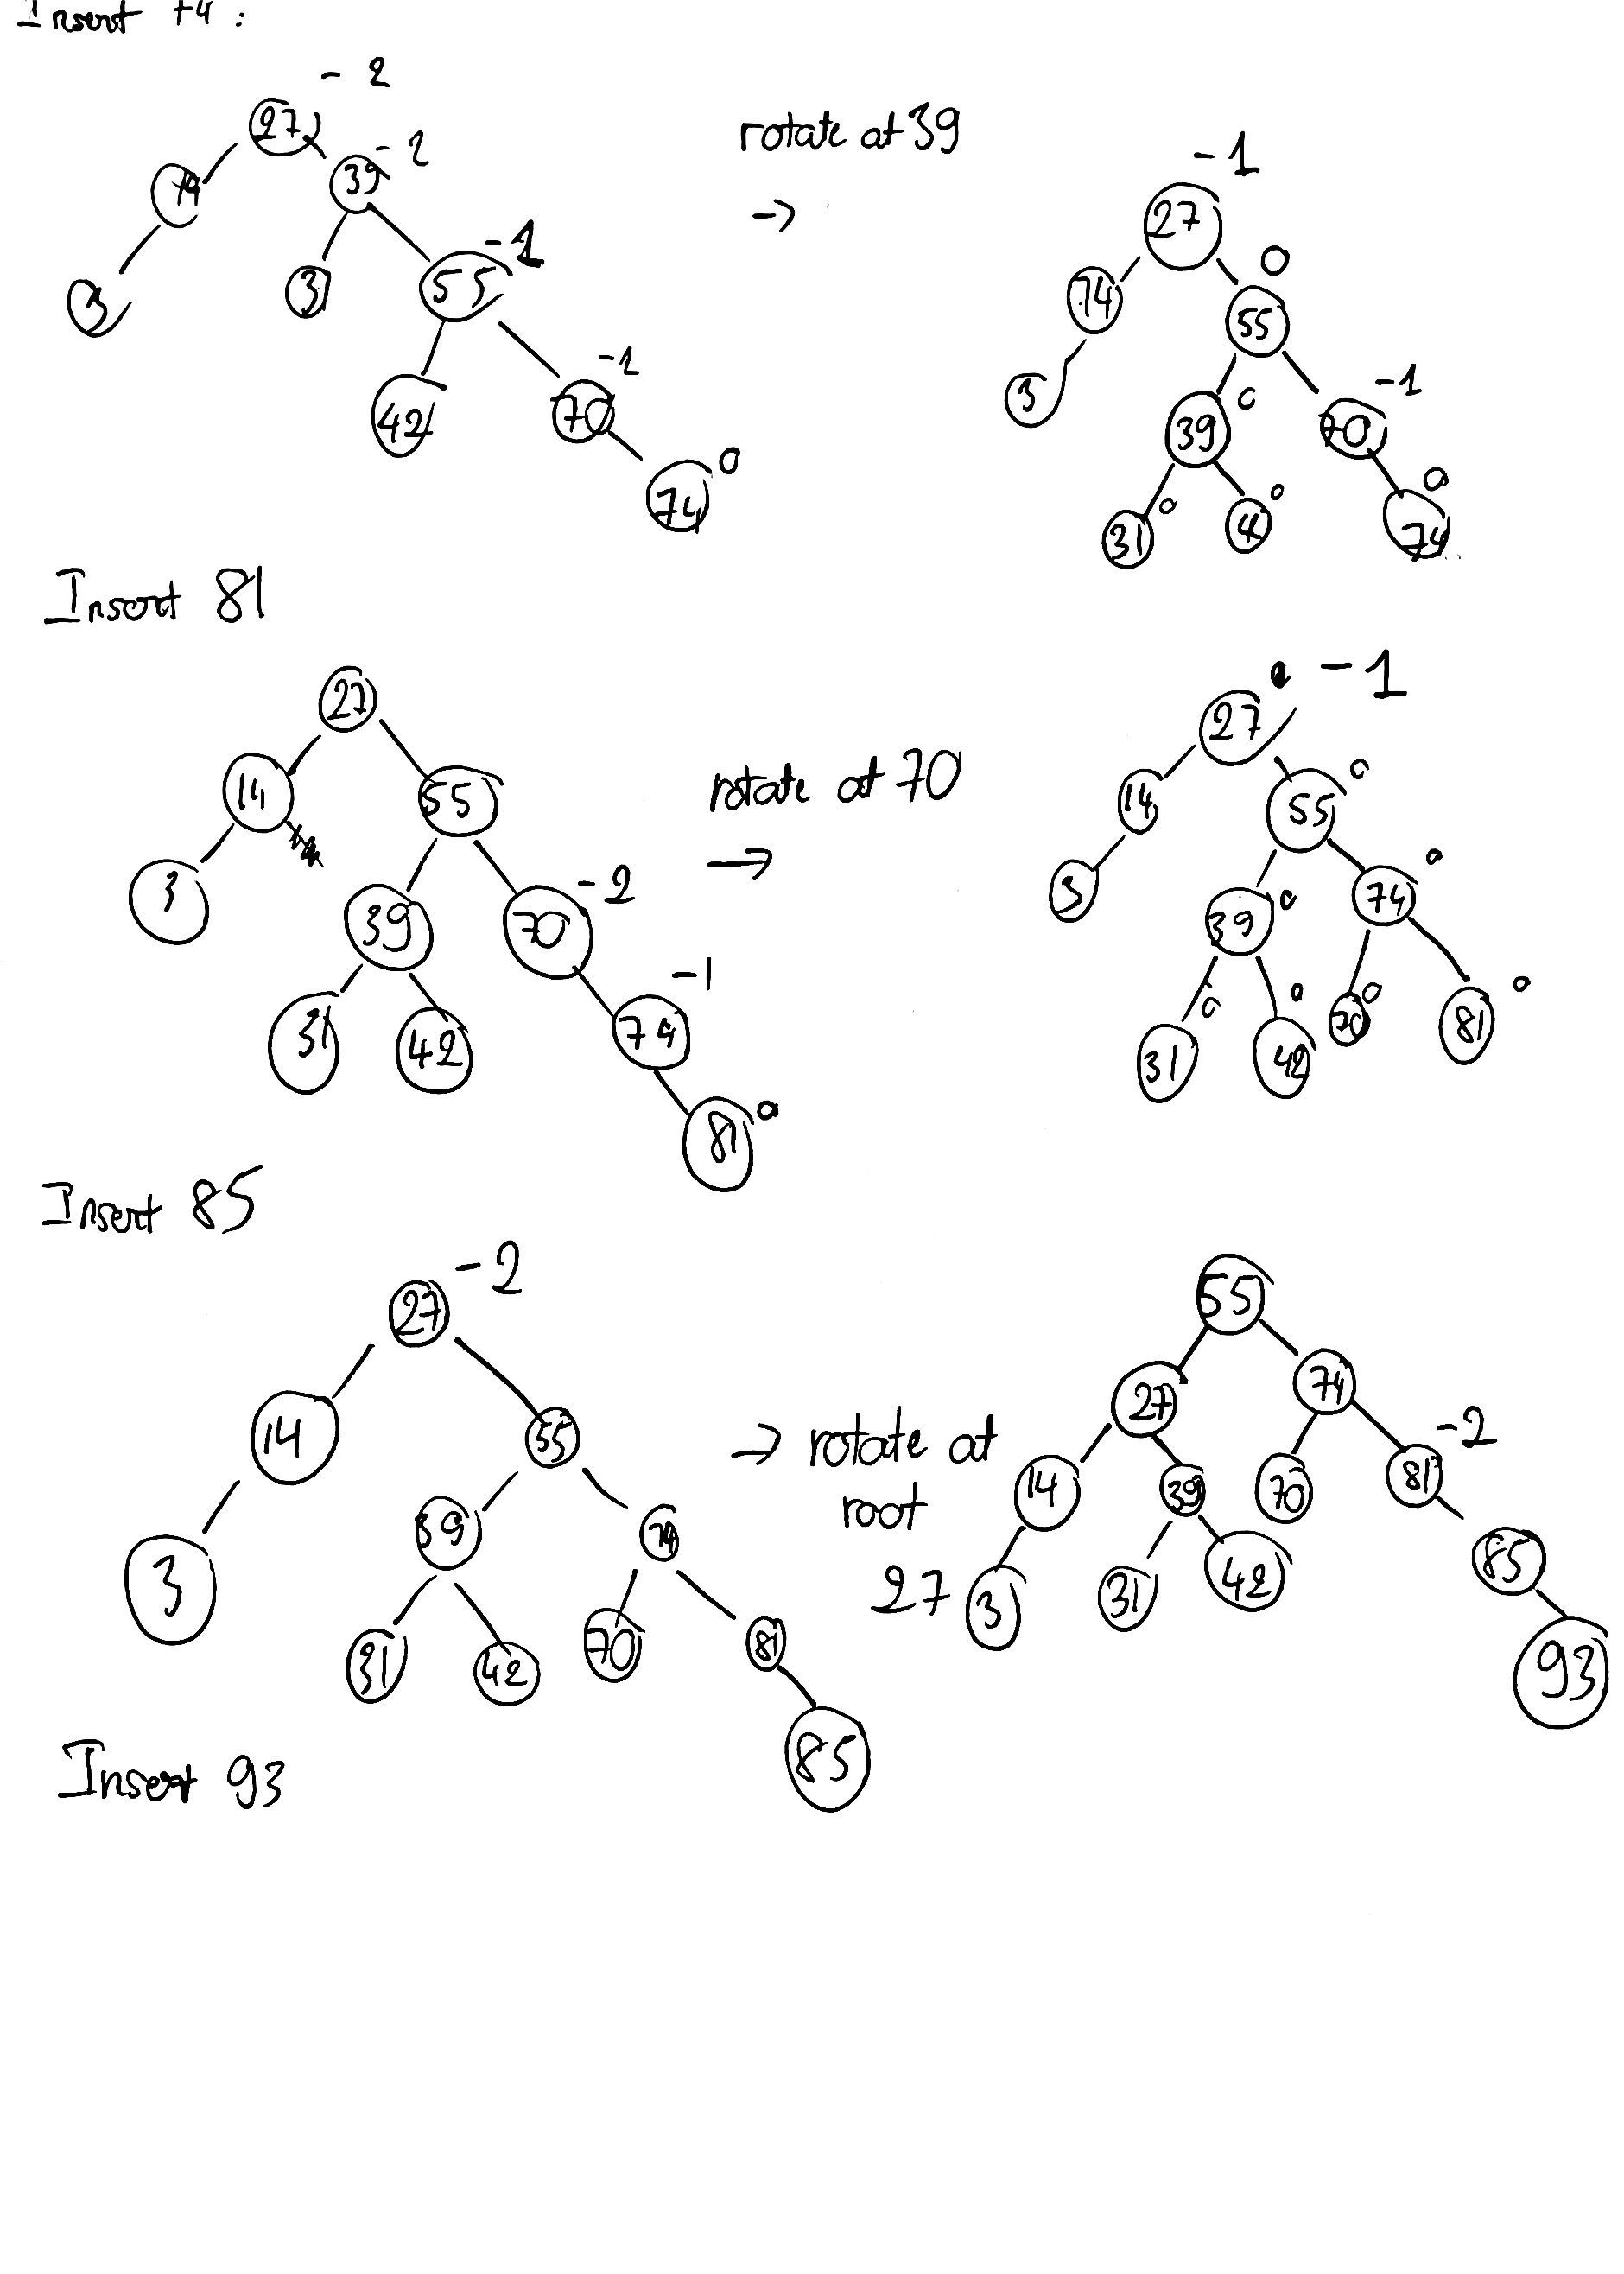 Insert 74 :
- 2
27
- 2
39
14
- 1
3
3
55
- 1
42
70
0
74
rotate at 39
→
- 1
27
0
74
55
0
- 1
3
39
70
0
0
0
31
74
Insert 81
27
14
55
3
39
- 2
70
- 1
31
42
74
0
81
rotate at 70
→
- 1
27
0
14
55
0
3
39
0
74
0
0
0
0
31
42
70
81
Insert 85
- 2
27
14
55
3
39
74
31
42
70
81
85
→ rotate at
root
27
55
27
74
- 2
14
39
70
81
3
31
42
85
93
Insert 93